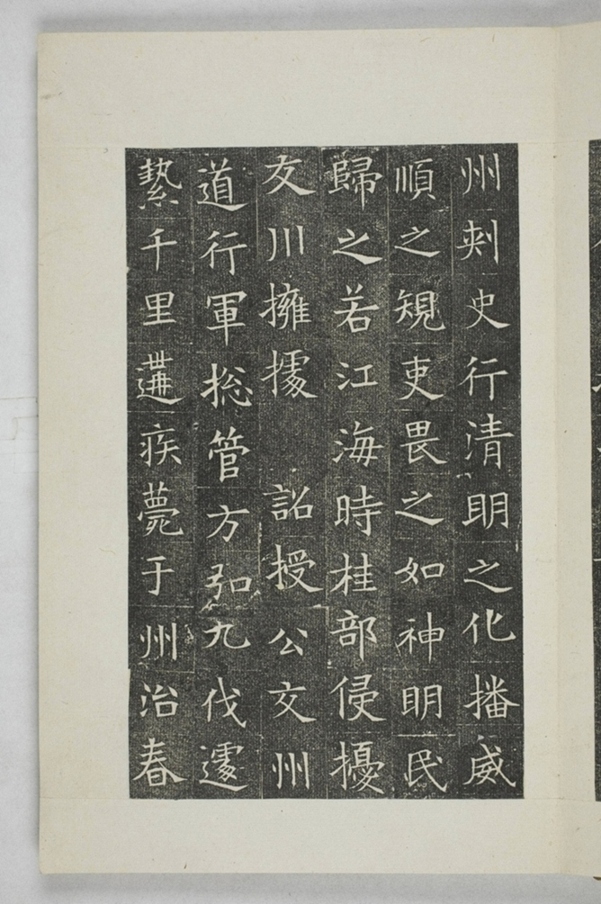 州刺史行清明之化播威
順之規吏畏之如神明民
歸之若江海時桂部侵擾
交川擁據 詔授公交州
道行軍捴管方弘九伐遽
縶千里遘疾薨于州治春